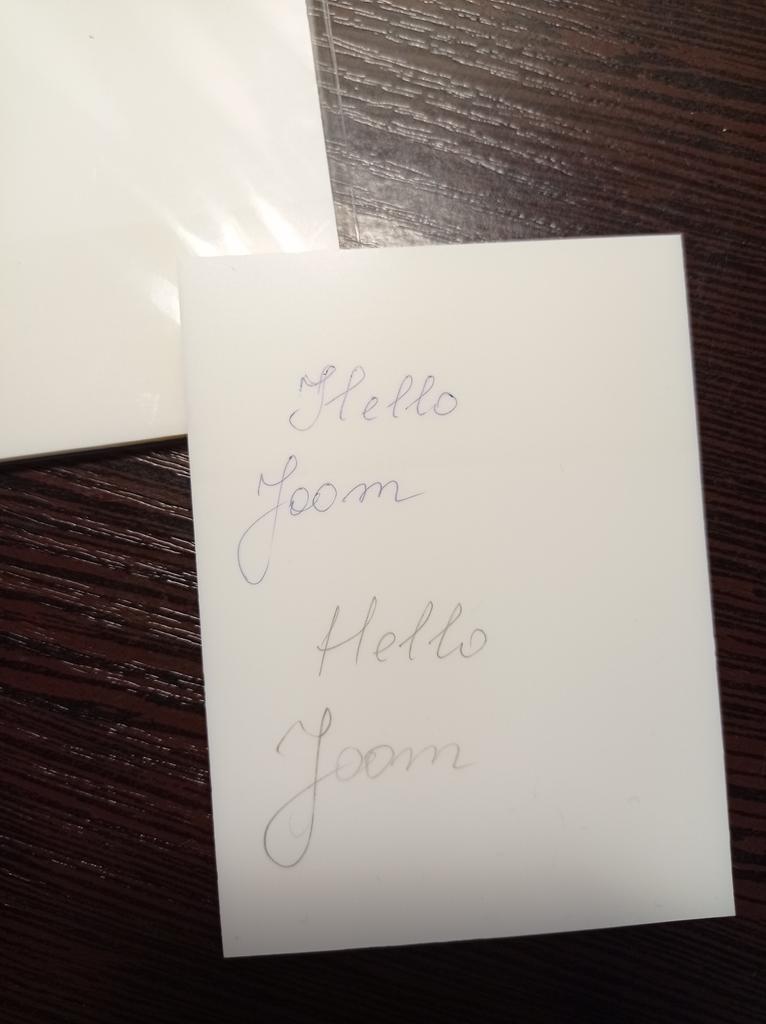 Hello
Joom
Hello
Joom